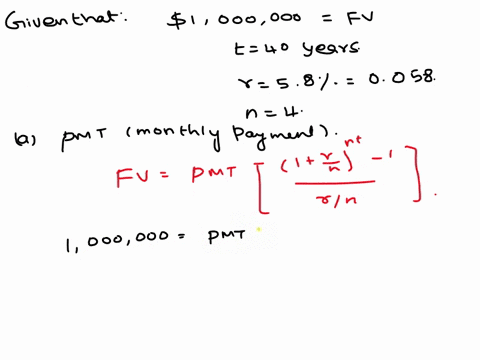 Given that: $1,000,000 = FV
t = 40 years
r = 5.8% = 0.058.
n = 4.
(a) PMT (monthly payment).
FV = PMT [ ((1 + r/n)^nt - 1) / (r/n) ].
1,000,000 = PMT